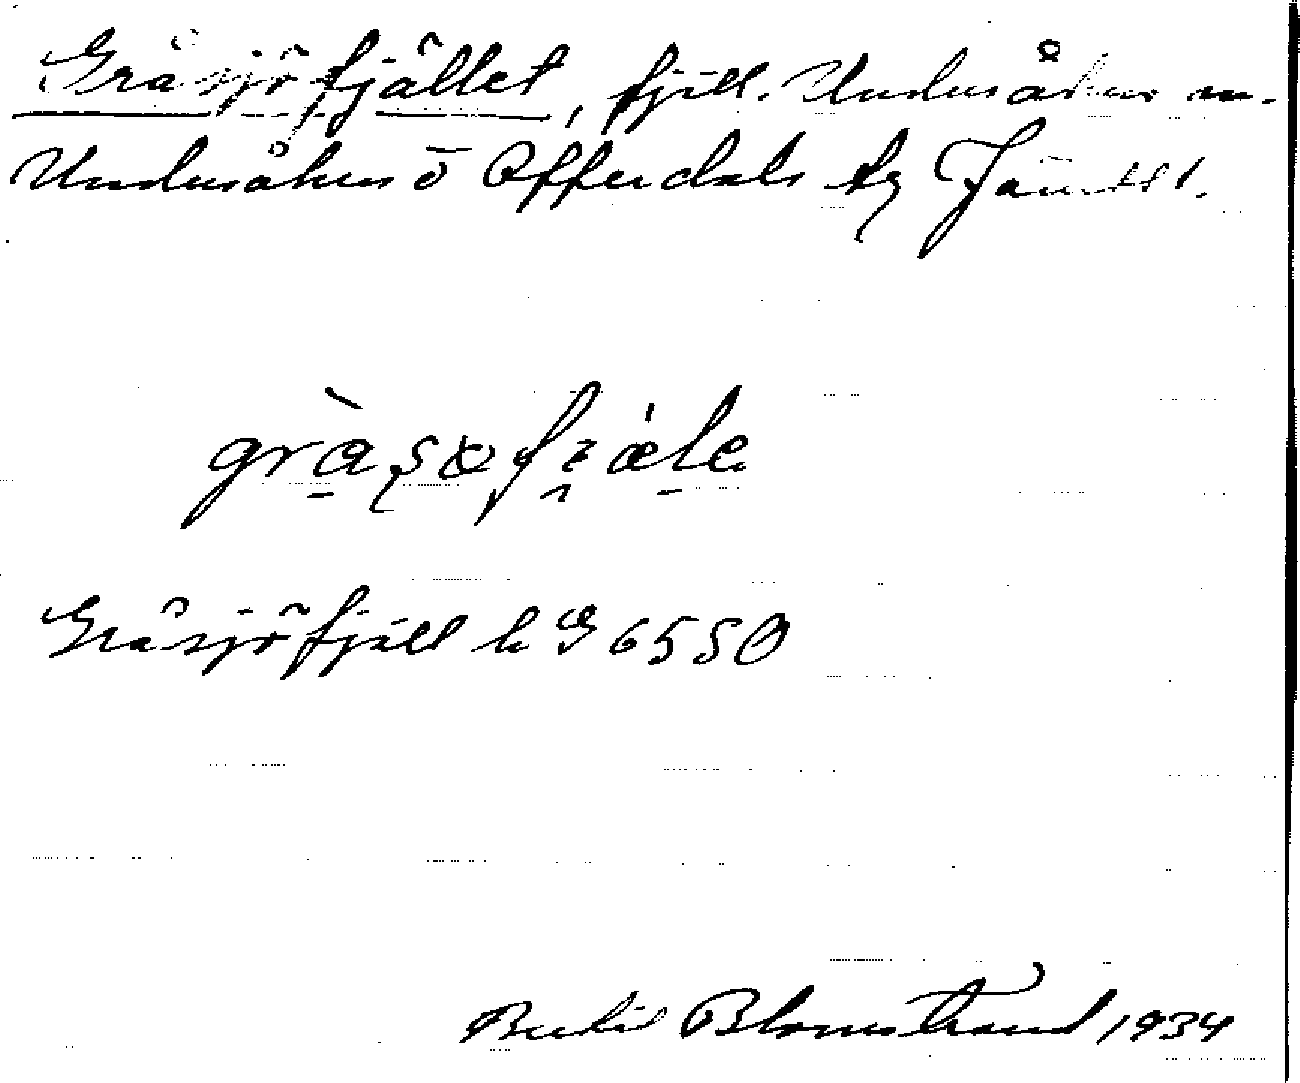 Gråsjöfjället, fjäll. Undersåkers sn.
Undersåkers o Offerdals tg Jämtl l.
gràʂøfi̯ǽle
Gråsjöfjäll k G 6550
Bertil Blomstrand 1934